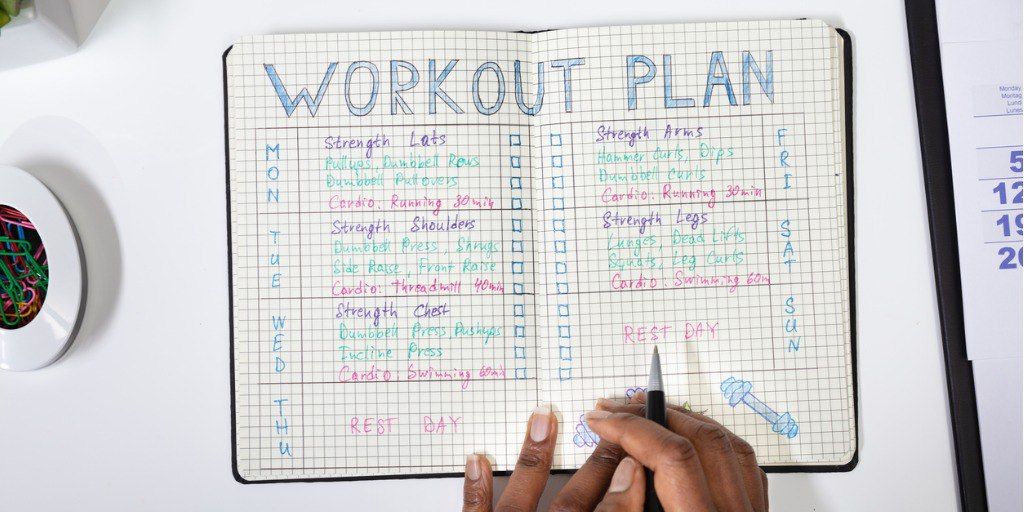 WORKOUT PLAN
MON
Strength Lats
Pullups, Dumbbell Rows
Dumbbell Pullovers
Cardio: Running 30min
TUE
Strength Shoulders
Dumbbell Press, Shrugs
Side Raise, Front Raise
Cardio: Threadmill 40min
WED
Strength Chest
Dumbbell Press, Pushups
Incline Press
Cardio: Swimming 60min
THU
REST DAY
FRI
Strength Arms
Hammer Curls, Dips
Dumbbell Curls
Cardio: Running 30min
SAT
Strength Legs
Lunges, Dead Lifts
Squats, Leg Curls
Cardio: Swimming 60m
SUN
REST DAY
Monday,
Montag
Lund
Lunes
5
12
19